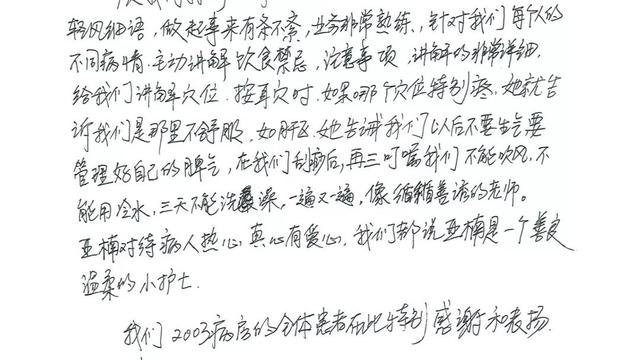 轻风细语，做起事来有条不紊，业务非常熟练，针对我们每个人的
不同病情．主动讲解饮食禁忌，注意事项，讲解的非常详细．
给我们讲解穴位．按耳穴时．如果哪个穴位特别疼，她就告
诉我们是那里不舒服．如肝区她告诫我们以后不要生气要
管理好自己的脾气，在我们刮痧后，再三叮嘱我们不能吹风，不
能用冷水，三天不能洗澡，一遍又一遍，像循循善诱的老师。
亚楠对待病人热心，真心有爱心，我们都说亚楠是一个善良
温柔的小护士．
我们2003病房的全体患者在此特别感谢和表扬．